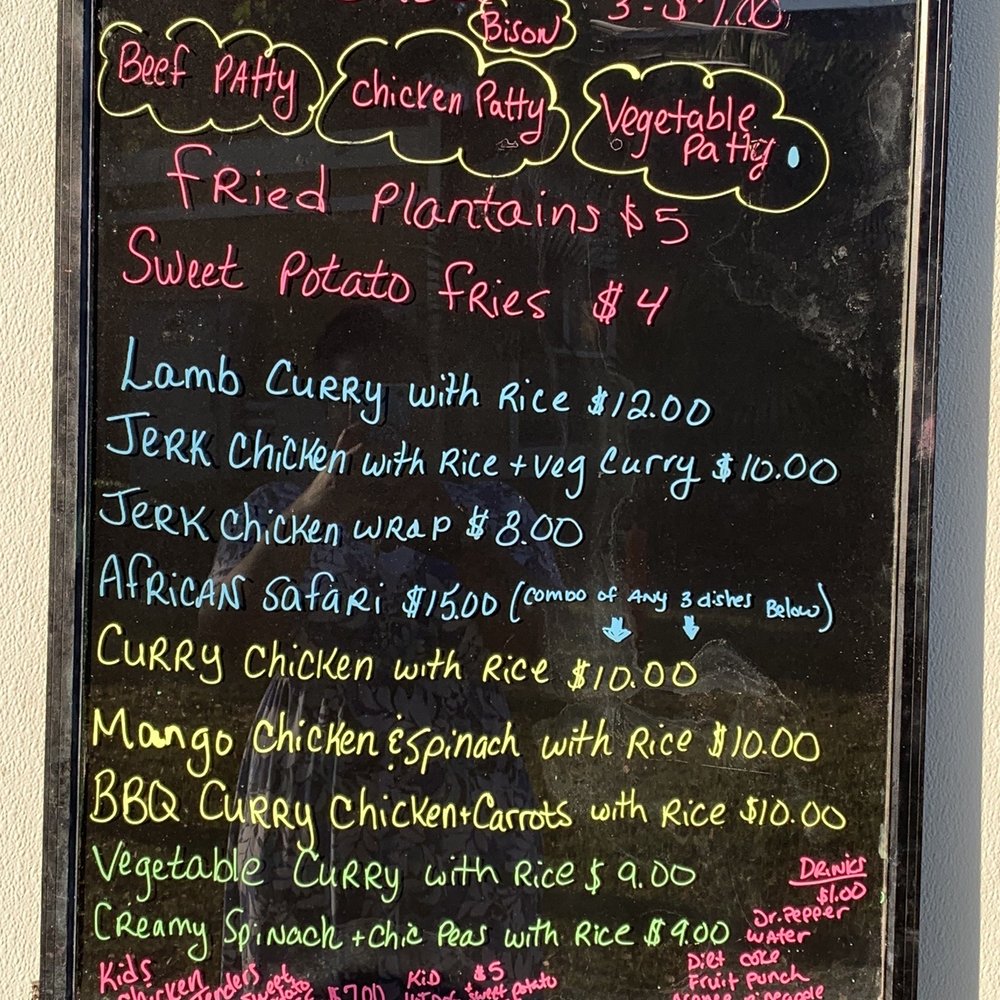 3-$7.00
Bison
Beef Patty Chicken Patty Vegetable Patty
Fried Plantains $5
Sweet Potato Fries $4
Lamb Curry with Rice $12.00
Jerk Chicken with Rice + Veg Curry $10.00
Jerk Chicken Wrap $8.00
African Safari $15.00 (combo of Any 3 dishes Below)
Curry Chicken with Rice $10.00
Mango Chicken & Spinach with Rice $10.00
BBQ Curry Chicken + Carrots with Rice $10.00
Vegetable Curry with Rice $9.00
Creamy Spinach + Chic Peas with Rice $9.00
Drinks
$1.00
Dr. Pepper
Water
Diet Coke
Fruit Punch
Kids
Chicken Tenders $7.00
Kid $5
sweet potato